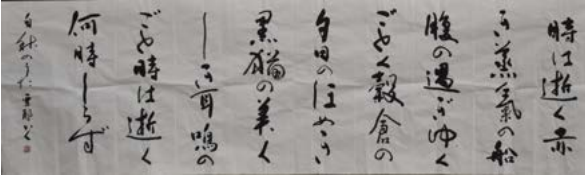 時は逝く赤
き蒸氣の船
腹の過ぎゆく
ごとく穀倉の
夕日のほめき
黒猫の美く
しき耳鳴の
ごと時は逝く
何時しらず
白秋のうた